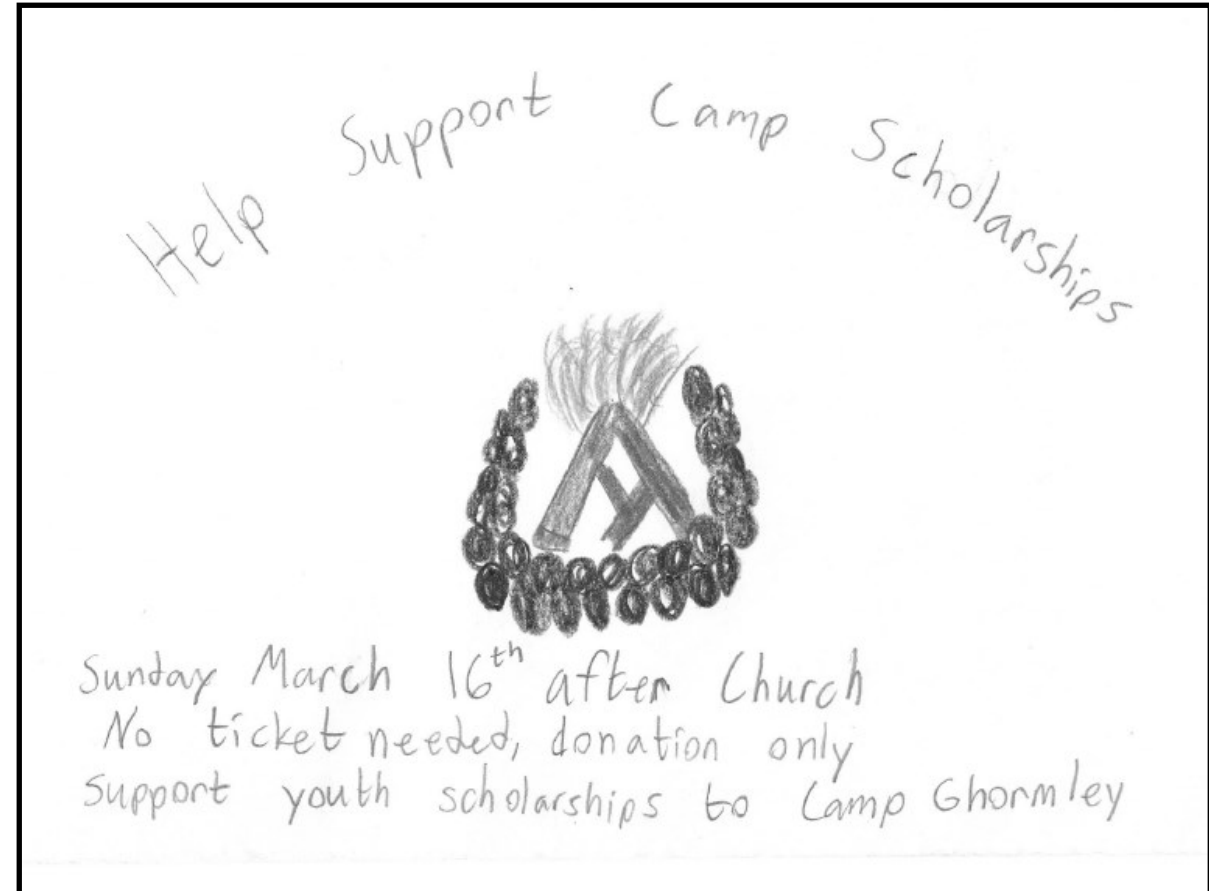 Help Support Camp Scholarships
Sunday March 16th after Church
No ticket needed, donation only
Support youth scholarships to Camp Ghormley